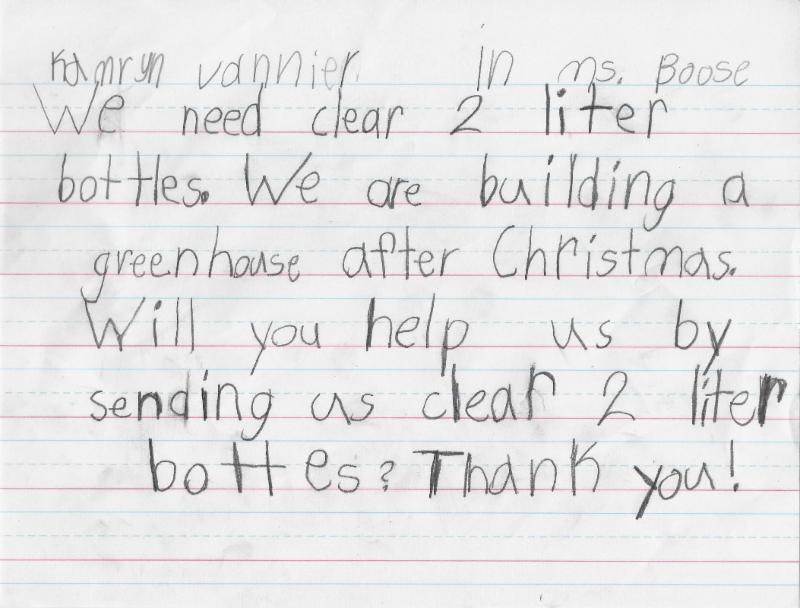 Kamryn Vannier in ms. Boose
We need clear 2 liter
bottles. We are building a
greenhouse after Christmas.
Will you help us by
sending us clear 2 liter
bottes? Thank you!